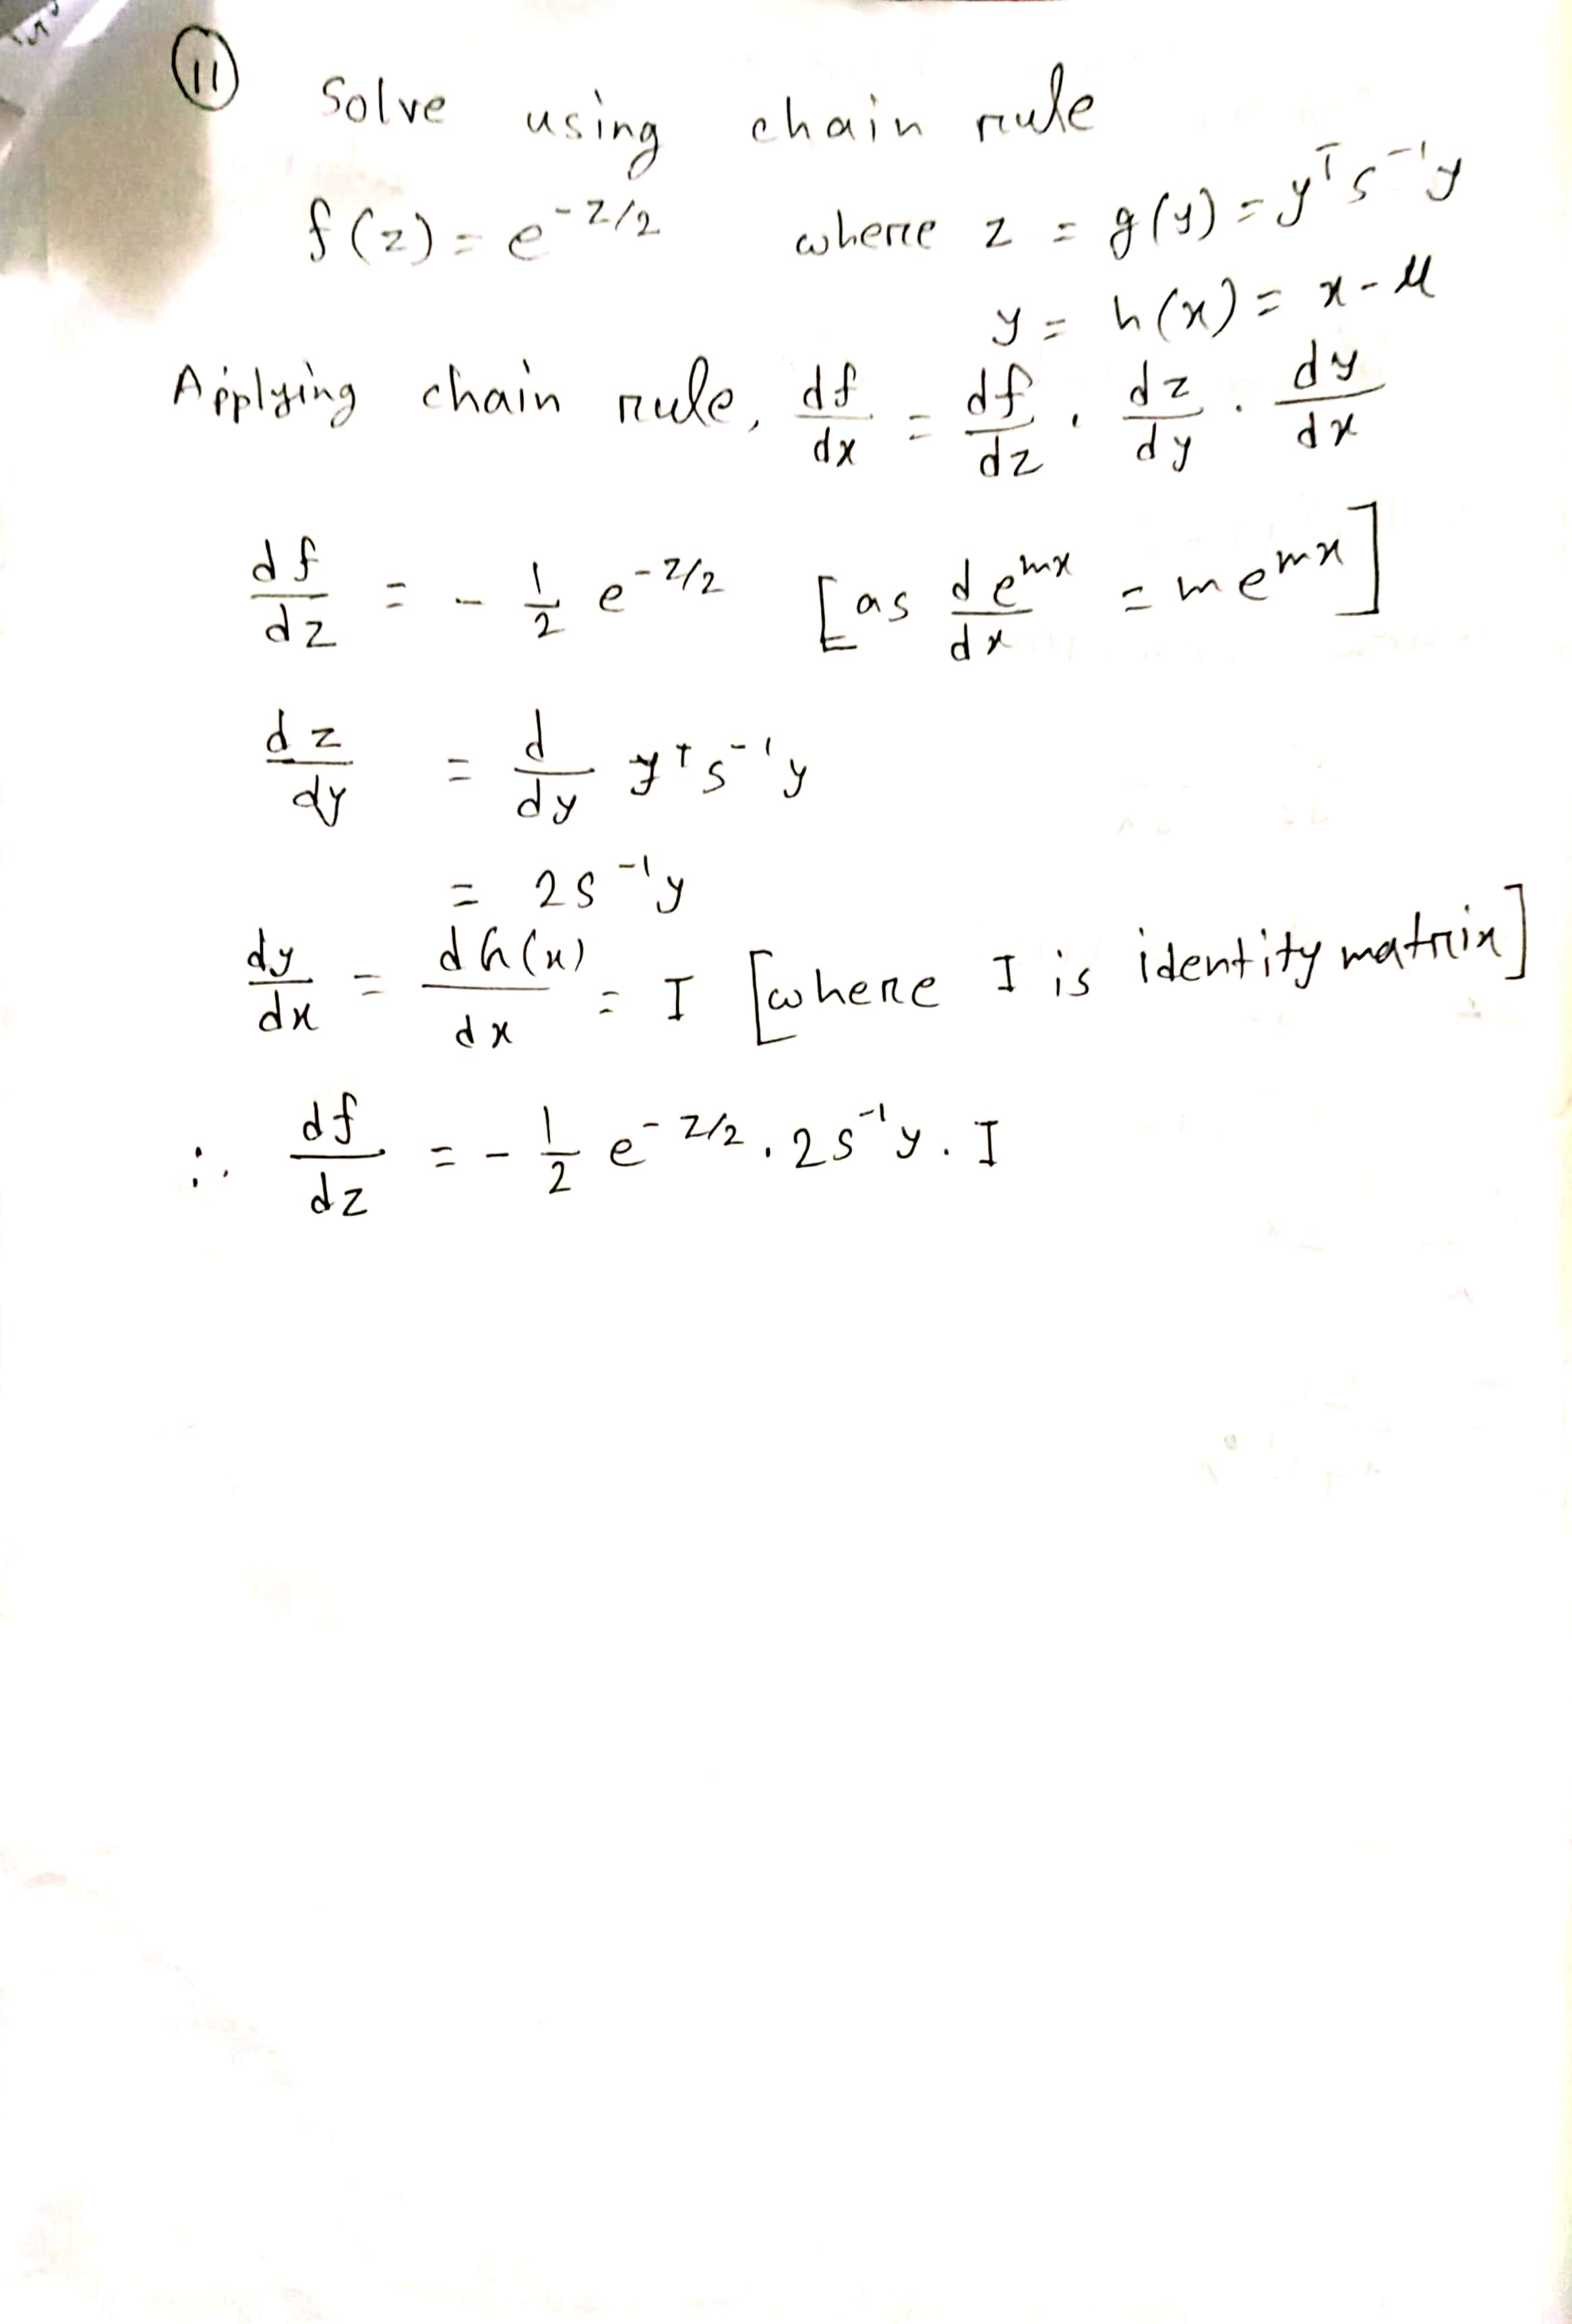 11 Solve using chain rule
f(z) = e^{-z/2} where z = g(y) = y^T s^{-1} y
y = h(x) = x - μ
Applying chain rule, df/dx = df/dz . dz/dy . dy/dx
df/dz = - 1/2 e^{-z/2} [as d e^{mx}/dx = m e^{mx}]
dz/dy = d/dy y^T s^{-1} y
= 2s^{-1}y
dy/dx = dh(x)/dx = I [where I is identity matrix]
∴ df/dz = - 1/2 e^{-z/2} . 2s^{-1}y . I